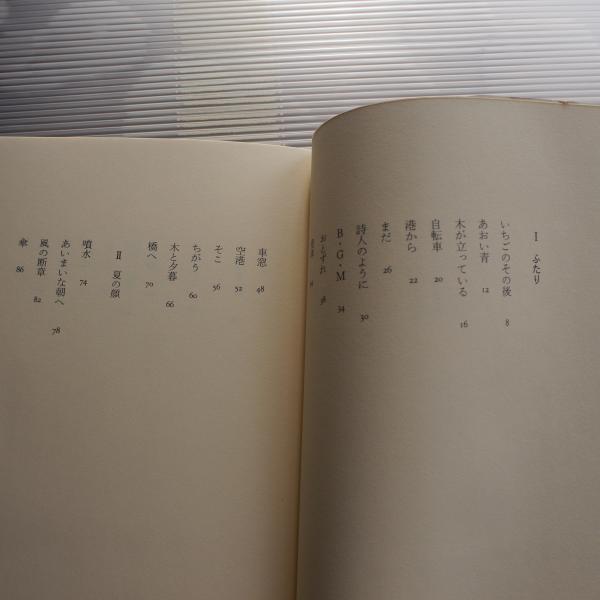 I ふたり
いちごのその後 8
あおい青 12
木が立っている 16
自転車 20
港から 22
まだ 26
詩人のように 30
B・G・M 34
おとずれ 38
車窓 48
空港 52
そこ 56
ちがう 60
木と夕暮 66
橋へ 70
II 夏の顔
噴水 74
あいまいな朝へ 78
風の断章 82
傘 86